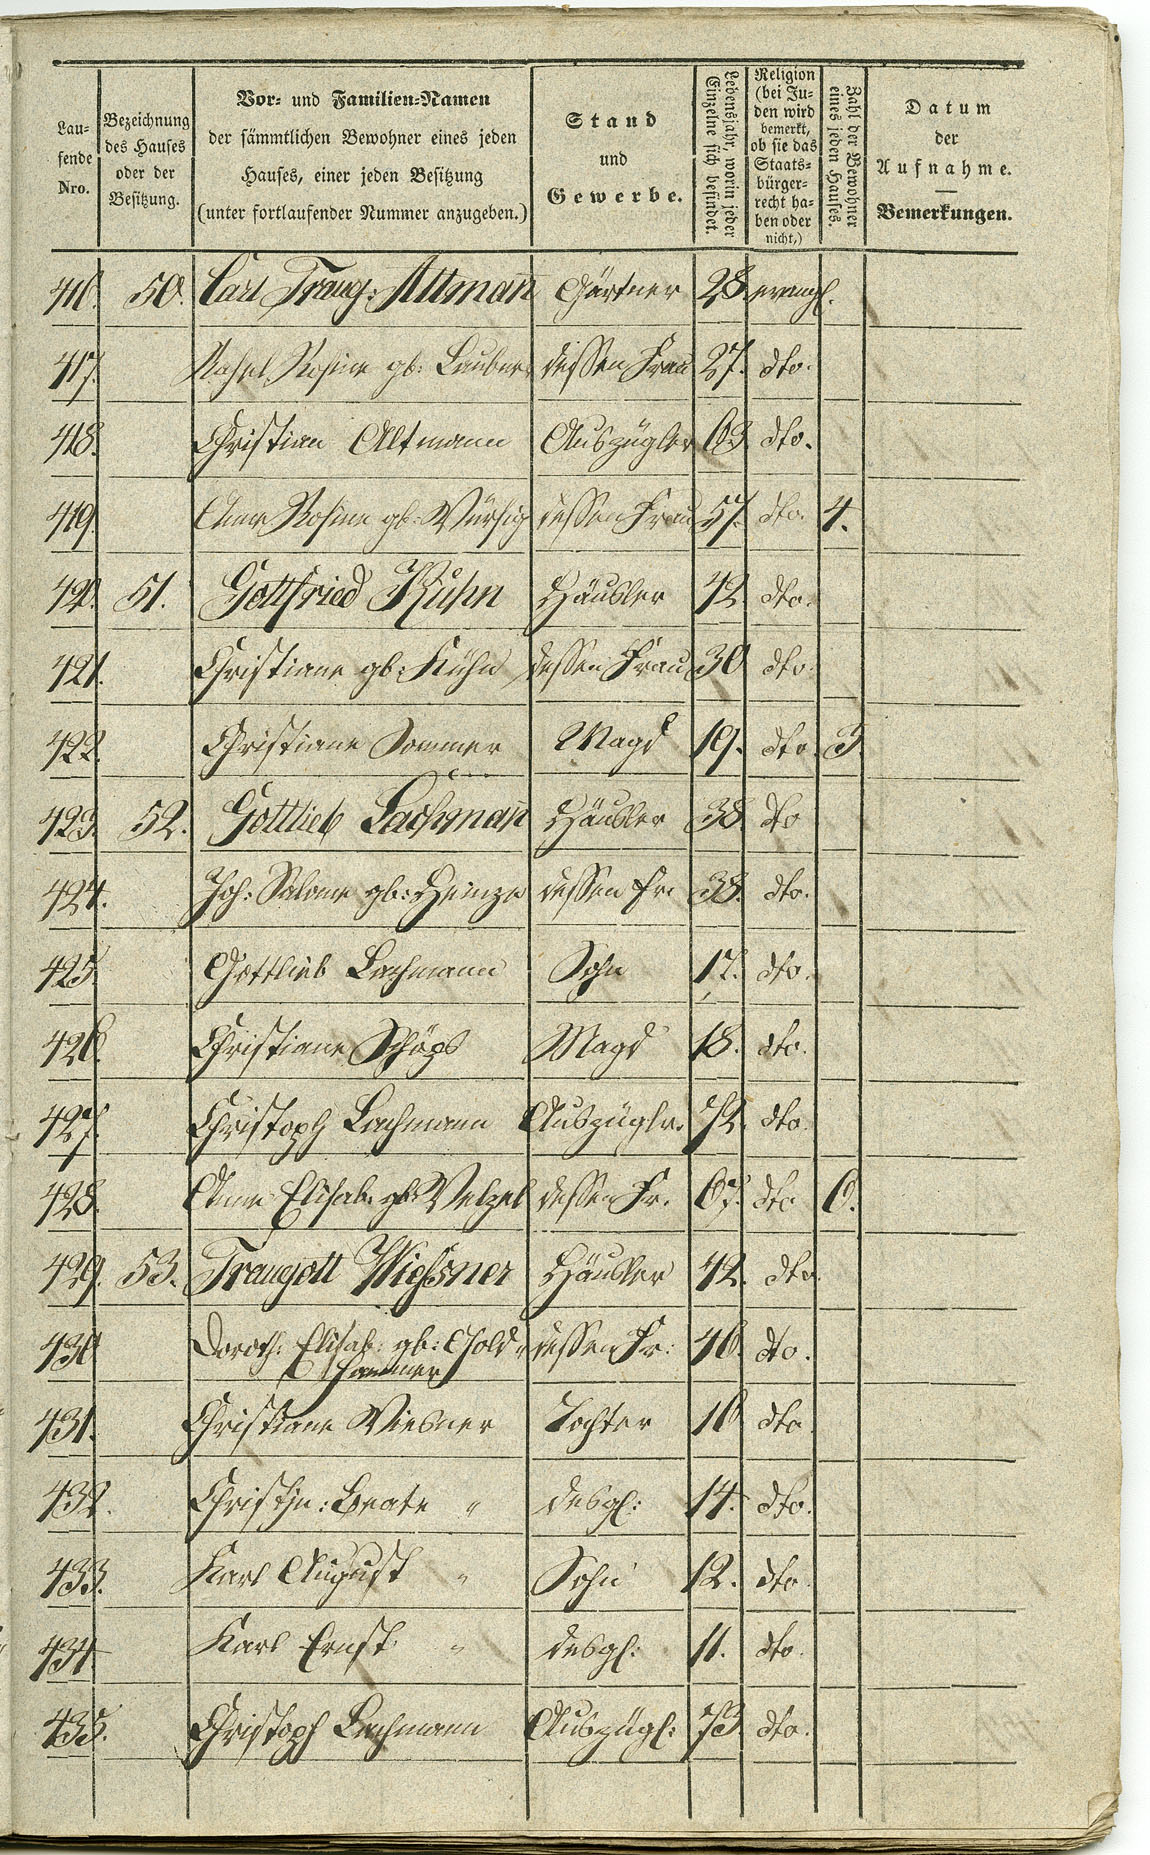 Lau-
fende
Nro.
Bezeichnung
des Hauses
oder der
Besitzung.
Vor- und Familien-Namen
der sämmtlichen Bewohner eines jeden
Hauses, einer jeden Besitzung
(unter fortlaufender Nummer anzugeben.)
Stand
und
Gewerbe.
Lebensjahr, worin jeder
Einzelne sich befindet.
Religion
(bei Ju-
den wird
bemerkt,
ob sie das
Staats-
bürger-
recht ha-
ben oder
nicht,)
Zahl der Bewohner
eines jeden Hauses.
Datum
der
Aufnahme.
Bemerkungen.
416. 50. Carl Traug: Altmann Gärtner 28. evangl.
417. Rahel Rosine gb: dessen Frau 27. dto.
418. Christian Altmann Auszügler 63 dto.
419. Anne Rosine gb: Würsig dessen Frau 57. dto. 4.
420. 51. Gottfried Kühn Häusler 42. dto.
421. Christiane gb: Kühn dessen Frau 30 dto.
422. Christiane Sommer Magd 19. dto. 3.
423. 52. Gottlieb Lachmann Häusler 38 dto
424. Joh: Salome gb: Heinze dessen Fr. 38. dto.
425. Gottlieb Lachmann Sohn 17. dto.
426. Christiane Schöps Magd 18. dto.
427. Christoph Lachmann Auszüglr. 72. dto.
428. Anne Elisab. gb: Welzel dessen Fr. 67. dto 6.
429. 53. Traugott Wießner Häusler 42. dto.
430 Doroth: Elisab: gb: Gold- dessen Fr: 46. dto.
hammer
431. Christiane Wiesner Tochter 16 dto.
432. Christin: Beate " desgl: 14. dto.
433. Karl August " Sohn 12. dto.
434. Karl Ernst " desgl: 11. dto.
435. Christoph Lachmann Auszügl: 73 dto.